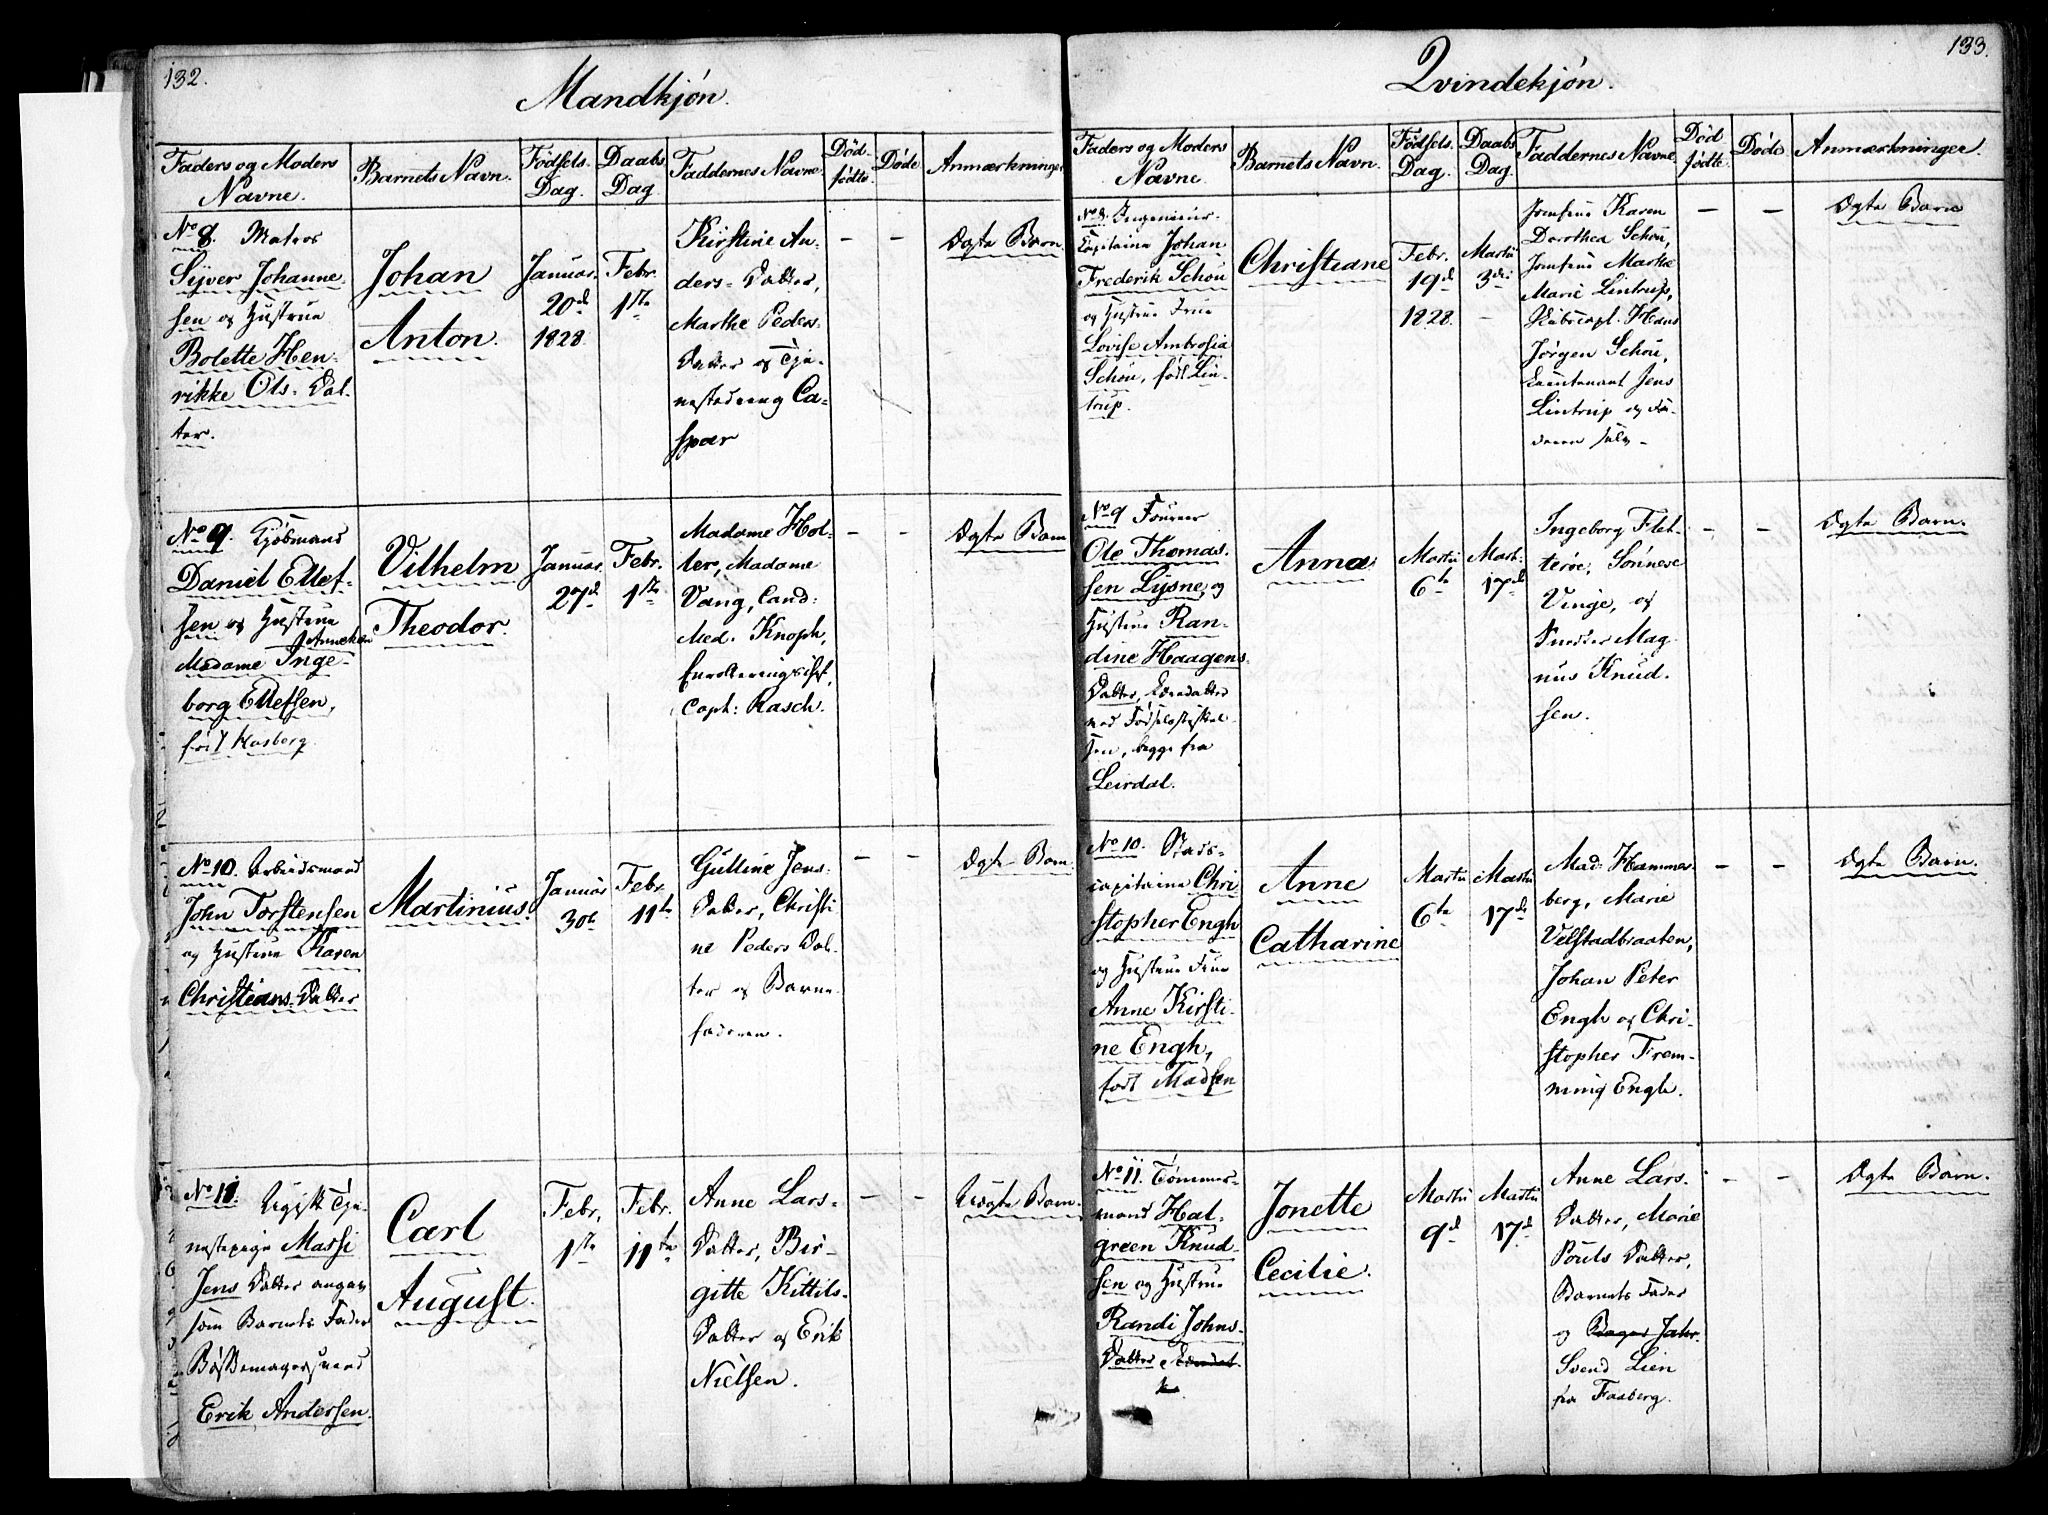 132.
Mandkjön.
Faders og Moders
Navne.
Barnets Navn.
Fødsels
Dag.
Daabs
Dag.
Faddernes Navne
Død-
fødte.
Døde
Anmærkninger
No 8. Matros
Syver Johanne-
sen og Hustrue
Bolette Hen-
rikke Ols- Dat-
ter.
Johan
Anton.
Januar.
20d
1828
Febr.
1ste
Kirstine An-
ders- Datter,
Marthe Peders-
Datter og Tje-
nestedreng Ca-
spar
— —
Ægte Barn
No 9. Kjøbmand
Daniel Ellef-
sen og Hustrue
Anneken
Madame Inge-
borg Ellefsen,
född Hasberg.
Vilhelm
Theodor.
Januar.
27d
Febr.
1ste
Madame Hol-
ter, Madame
Vang, Cand:
Med. Knoph,
Enrolleringschef,
Capt: Rasch.
— —
Ægte Barn
No 10. Arbeidsmand
John Torstensen
og Hustrue Karen
Christians- Datter
Martinius.
Januar
30te
Febr.
11te
Gulline Jens-
Datter, Christi
ne Peders Dat-
ter og Barne-
faderen.
— —
Ægte Barn.
No 11. Ugift Tje-
nestepige Massi
Jens Datter angav
som Barnets Fader
Bössemagersvend
Erik Andersen.
Carl
August.
Febr.
1ste
Febr.
11te
Anne Lars-
Datter, Bir-
gitte Kittils-
Datter og Erik
Nielsen.
— —
Uægte Barn.
133.
Qvindekjön.
Faders og Moders
Navne
Barnets Navn.
Fødsels.
Dag.
Daabs
Dag.
Faddernes Navne
Död
fødte.
Døde
Anmærkninger.
No 8. Ingenieur-
Capitaine Johan
Frederik Schou
og Hustrue Frue
Lovise Ambrosia
Schou, född Lin-
trup.
Christiane
Febr.
19d
1828.
Martii
3die
Jomfrue Karen
Dorothea Schou,
Jomfrue Marthe
Marie Lintrup,
Hans
Jørgen Schou,
Lieutenant Jens
Lintrup og Fa-
deren selv
— —
Ægte Barn
No 9
Ole Thomas-
sen Lysne, og
Hustrue Ran-
dine Haagens-
Datter,
begge fra
Leirdal.
Anna
Martii
6te
Mart.
17d
Ingeborg Flet-
teröe, Sönneve
Vinge, og
Mag-
nus Knud-
sen.
— —
Ægte Barn.
No 10.
capitaine Chri-
stopher Engh
og Hustrue Frue
Anne Kirsti-
ne Engh,
född Madsen
Anne
Catharine
Martii
6te
Martii
17de
Mad. Hammers-
berg, Marie
Velstadbraaten,
Johan Peter
Engh og Chri-
stopher From-
ming Engh.
— —
Ægte Barn.
No 11. Tömmer-
mand Hal-
green Knud-
sen og Hustrue
Randi Johns-
Datter
Jonette
Cecilie.
Martii
9d
Martii
17d
Anne Lars-
Datter, Marie
Pouls Datter,
Barnets Fader
og
Svend Lien
fra Faaberg.
— —
Ægte Barn.